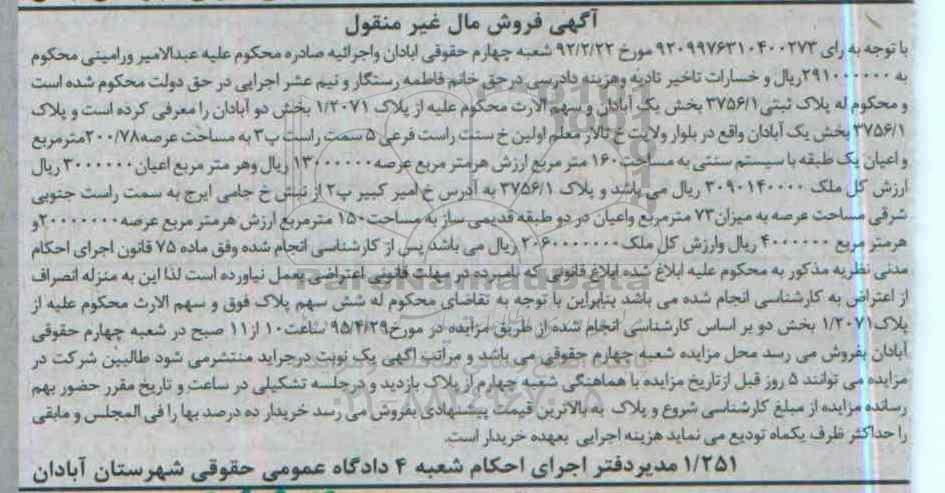 آگهی فروش مال غیر منقول
با توجه به رای ۹۲۰۹۹۷۶۳۱۰۴۰۰۲۷۳ مورخ ۹۲/۲/۲۲ شعبه چهارم حقوقی ابادان واجرائیه صادره محکوم علیه عبدالامیر ورامینی محکوم
به ۲۹۱۰۰۰۰۰۰ریال و خسارات تاخیر تادیه وهزینه دادرسی درحق خانم فاطمه رستگار و نیم عشر اجرایی در حق دولت محکوم شده است
و محکوم له پلاک ثبتی ۳۷۵۶/۱ بخش یک آبادان و سهم الارث محکوم علیه از پلاک ۱/۲۰۷۱ بخش دو آبادان را معرفی کرده است و پلاک
۳۷۵۶/۱ بخش یک آبادان واقع در بلوار ولایت خ تالار معلم اولین خ سمت راست فرعی ۵ سمت راست پ۳ به مساحت عرصه۲۰۰/۷۸مترمربع
و اعیان یک طبقه با سیستم سنتی به مساحت ۱۶۰ متر مربع ارزش هرمتر مربع عرصه ۱۳۰۰۰۰۰۰ ریال وهر متر مربع اعیان ۳۰۰۰۰۰۰ ریال
ارزش کل ملک ۳۰۹۰۱۴۰۰۰۰ ریال می باشد و پلاک ۳۷۵۶/۱ به آدرس خ امیر کبیر پ۲ از نبش خ حامی ایرج به سمت راست جنوبی
شرقی مساحت عرصه به میزان۷۳ مترمربع واعیان در دو طبقه قدیمی ساز به مساحت ۱۵۰ مترمربع ارزش هرمتر مربع عرصه ۲۰۰۰۰۰۰۰و
هرمتر مربع ۴۰۰۰۰۰۰ ریال وارزش کل ملک ۲۰۶۰۰۰۰۰۰۰ ریال می باشد پس از کارشناسی انجام شده وفق ماده ۷۵ قانون اجرای احکام
مدنی نظریه مذکور به محکوم علیه ابلاغ شده ابلاغ قانونی که نامبرده در مهلت قانونی اعتراضی بعمل نیاورده است لذا این به منزله انصراف
از اعتراض به کارشناسی انجام شده می باشد بنابراین با توجه به تقاضای محکوم له شش سهم پلاک فوق و سهم الارث محکوم علیه از
پلاک ۱/۲۰۷۱ بخش دو بر اساس کارشناسی انجام شده از طریق مزایده در مورخ۹۵/۴/۲۹ ساعت۱۰ از۱۱ صبح در شعبه چهارم حقوقی
آبادان بفروش می رسد محل مزایده شعبه چهارم حقوقی می باشد و مراتب اگهی یک نوبت درجراید منتشرمی شود طالبین شرکت در
مزایده می توانند ۵ روز قبل ازتاریخ مزایده با هماهنگی شعبه چهارم از پلاک بازدید و درجلسه تشکیلی در ساعت و تاریخ مقرر حضور بهم
رسانده مزایده از مبلغ کارشناسی شروع و پلاک به بالاترین قیمت پیشنهادی بفروش می رسد خریدار ده درصد بها را فی المجلس و مابقی
را حداکثر ظرف یکماه تودیع می نماید هزینه اجرایی بعهده خریدار است.
۱/۲۵۱ مدیردفتر اجرای احکام شعبه ۴ دادگاه عمومی حقوقی شهرستان آبادان
ParsNamadData